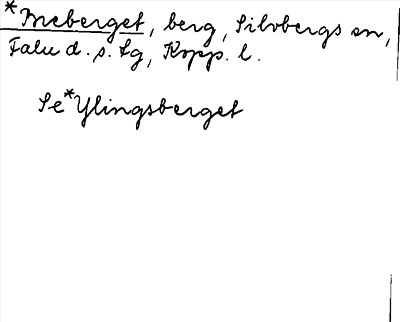 *Breberget, berg, Silvbergs sn,
Falu d. s. Lg, Kopp. l.
Se *Ylingsberget